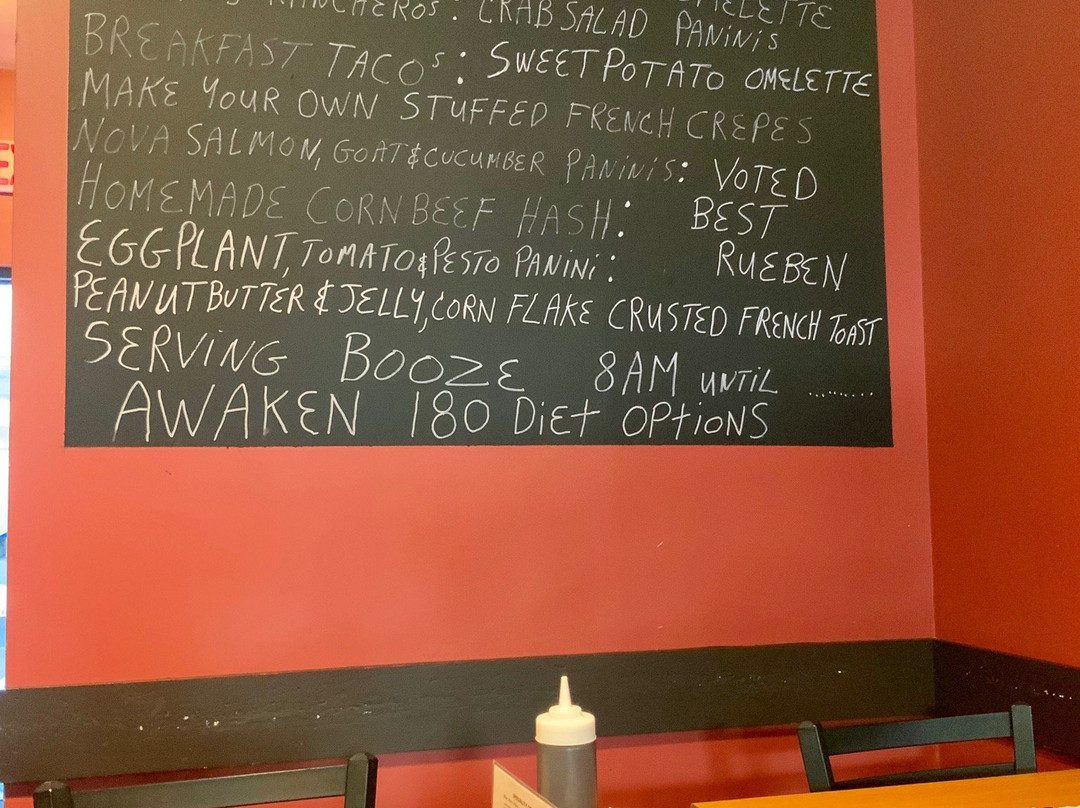 RANCHEROS: CRAB SALAD PANINIS OMELETTE
BREAKFAST TACOS: SWEET POTATO OMELETTE
MAKE YOUR OWN STUFFED FRENCH CREPES
NOVA SALMON, GOAT & CUCUMBER PANINIS: VOTED
HOMEMADE CORN BEEF HASH: BEST
EGGPLANT, TOMATO & PESTO PANINI: RUEBEN
PEANUT BUTTER & JELLY, CORN FLAKE CRUSTED FRENCH TOAST
SERVING BOOZE 8AM UNTIL .........
AWAKEN 180 DIET OPTIONS